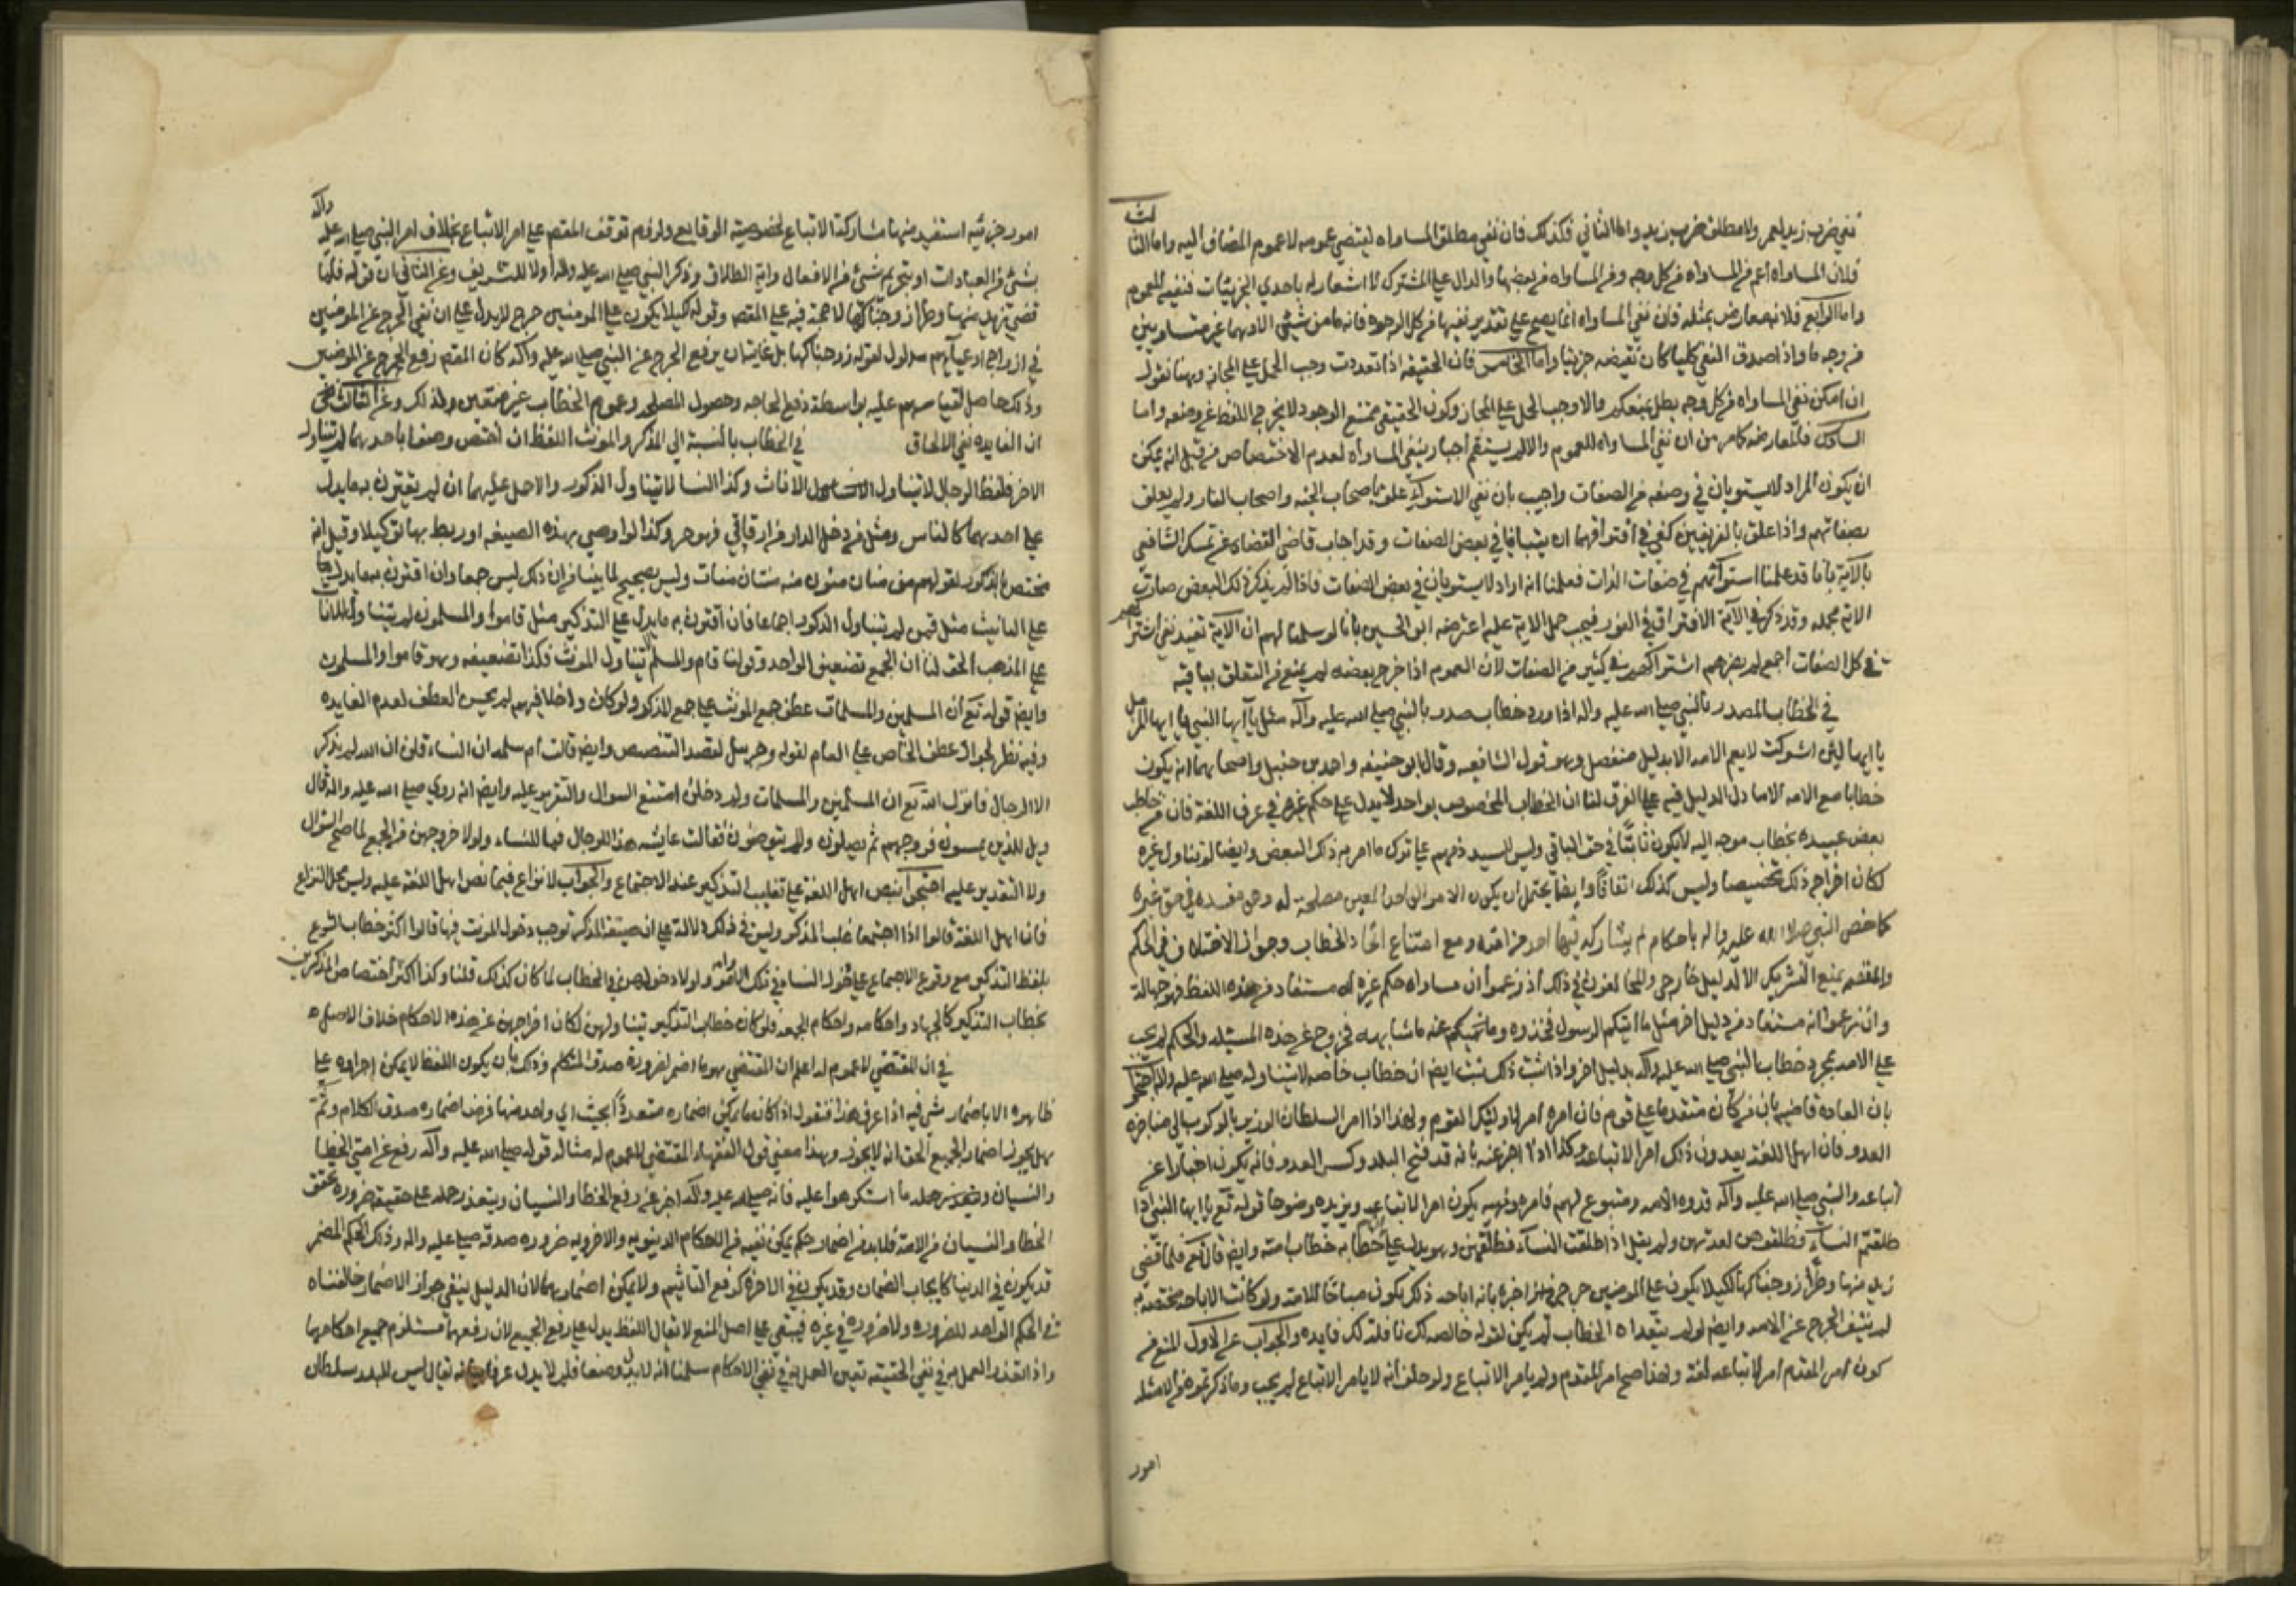 نفي ضرب زيد لعمر ولا مطلق ضرب زيد واما الثاني فكذلك فان نفي مطلق المساواه ليقتضي عمومه لا عموم المضاف اليه واما الثالث
فلان المساواه اعم من المساواه من كل وجه ومن المساواه من بعضها والدال على المشترك لا اشعار له باحدي الجزئيات فنفيه للعموم
واما الرابع فلانه معارض بمثله فان نفي المساواه انما يصح على تقدير نفيها من كل الوجوه فانه ما من شيئين الا وهما غير متساويين
من وجه ما واذا صدق النفي كليا كان نقيضه جزئيا واما الخامس فان الحقيقه اذا تعددت وجب الحمل على المجاز وهنا نقول
ان امكن نفي المساواه من كل وجه بطل منعكم والا وجب الحمل على المجاز وكون الحقيقي ممتنع الوجود لا يخرج اللفظ عن وضعه واما
السادس فالمعارضه كما مر من ان نفي المساواه للعموم والا لم يستقم اخبار بنفي المساواه لعدم الاختصاص من قبل انه يمكن
ان يكون المراد لا يستويان في وصفه من الصفات واجيب بان نفي الاستواء علق باصحاب الجنه واصحاب النار ولم يعلق
بصفاتهم واذا علق بالفريقين كفي في افتراقهما ان يتباينا في بعض الصفات وقد اجاب قاضي القضاه عن تمسك الشافعي
بالآية بانا قد علمنا استوائهم في صفات الذات فعلمنا انه اراد لا يستويان في بعض الصفات فاذا لم يذكر ذلك البعض صارت
الاية مجمله وقد ذكر في الآية الافتراق في الفوز فيجب حمل الاية عليه اعترضه ابو الحسين بانا لو سلمنا لهم ان الآية تفيد نفي اشتراكهم
في كل الصفات اجمع لم يضرهم اشتراكهم في كثير من الصفات لان العموم اذا خرج بعضه لم يمنع من التعلق بباقيه
في الخطاب المصدر بالنبي صلى الله عليه واله اذا ورد خطاب مصدر بالنبي صلى الله عليه وآله مثل يا آيها النبي يا ايها المزمل
يا ايها لئن اشركت لا يعم الامه الا بدليل منفصل وهو قول الشافعيه وقال ابو حنيفه واحمد بن حنبل واصحابهما انه يكون
خطابا مع الامه الا ما دل الدليل فيه على الفرق لنا ان الخطاب المخصوص بواحد لا يدل على حكم غيره في عرف اللغة فان من خاطب
بعض عبيده بخطاب موجه اليه لا يكون ثابتًا في حق الباقي وليس للسيد ذمهم على ترك ما امر به ذلك البعض وايضا لو تناول غيره
لكان اخراجه ذلك تخصيصا وليس كذلك اتفاقًا وايضا يحتمل ان يكون الامر الواحد المعين مصلحة له وهي مفسده في حق غيره
كما خص النبي صلى الله عليه واله باحكام لم يشاركه فيها احد من امته ومع امتناع اتحاد الخطاب وجواز الاختلاف في الحكم
والمقتضي يمنع التشريك الا لدليل خارجي والمخالفون في ذلك اذ زعموا ان مساواه حكم غيره له مستفاد من هذه اللفظ فهو جهالة
وان زعموا انه مستفاد من دليل اخر مثل ما اتيكم الرسول فخذوه وما نهيكم عنه ما شابهه فخروج عن هذه المسئله والحكم لم يجب
على الامه بمجرد خطاب النبي صلى الله عليه وآله بدليل اخر واذا ثبت ذلك ثبت ايضا ان خطاب خاصه لا يتناوله صلى الله عليه واله احتجوا
بان العاده قاضيه بان من كان متقدما على قوم فان امره امر لاولئك القوم ولهذا اذا امر السلطان الوزير بالركوب الى مناجزه
العدو فان اهل اللغه يعدون ذلك امرا لاتباعه وكذا اذا اخبر عنه بانه قد فتح البلد وكسر العدو فانه يكون اخبارا عن
اتباعه والنبي صلى الله عليه وآله قدوه الامه ومتبوع لهم فامره ونهيه يكون امرا لاتباعه ويزيده وضوحا قوله تع يا ايها النبي اذا
طلقتم النساء فطلقوهن لعدتهن ولم يقل اذا طلقت النساء فطلقهن وهو يدل على ان خطابه خطاب امته وايضا قال تع فلما قضى
زيد منها وطرًا زوجناكها لكيلا يكون على المومنين حرج اخبره بانه اباحه ذلك ليكون مباحًا للامته ولو كانت الاباحه مختصه به
لم ينتف الحرج عن الامه وايضا لو لم يتعداه الخطاب لم يكن لقوله خالصه لك نافله لك فايده والجواب عن الاول المنع من
كون امر المقدم امرا لاتباعه لغة ولهذا صح امر المقدم ولم يامر الاتباع ولو حلف انه لا يامر الاتباع لم يجب وما ذكرتموه من الامثله
امور
امور جزئيه استفيد منها مشاركة الاتباع لخصوصيته الوقايع ولزوم توقف المقصود على امر الاتباع بخلاف امر النبي صلى الله عليه وآله
بشئ من العبادات او تحريم شئ من الافعال واية الطلاق وذكر النبي صلى الله عليه واله اولا للتشريف وعن الثاني ان قوله فلما
قضى زيد منها وطرا زوجناكها لا حجة فيه على المقصود وقوله لكيلا يكون على المومنين حرج لا يدل على ان نفي الحرج عن المومنين
في ازواج ادعيآئهم مدلول لقوله زوجناكها بل غايته ان يرفع الحرج عن النبي صلى الله عليه وآله كان المقصود رفع الحرج عن المومنين
وذلك حاصل لقياسهم عليه بواسطة دفع الحاجه وحصول المصلحه وعموم الخطاب غير متعين ولذلك وعن الثالث
ان الفايده نفي الالحاق في الخطاب بالنسبة الى المذكر والمونث اللفظ ان اختص وضعا باحدهما لم يتناول
الاخر فلفظ الرجال لا يتناول الاناث وكذا النسا لا يتناول الذكور والا حمل عليهما ان لم يقترن به ما يدل
على احدهما كالناس ومثل من دخل الدار من ارقائي فهو حر وكذا لو اوصي بهذه الصيغه او ربط بها توكيلا وقيل انه
مختص بالذكور لقولهم من منان منون منه منتان منات وليس بصحيح لما بينا فان ذلك ليس جمعا وان اقترن به ما يدل
على التانيث مثل قمن لم يتناول الذكور اجماعا فان اقترن به ما يدل على التذكير مثل قاموا والمسلمون لم يتناول الاناث
على المذهب الحق لنا ان الجمع تضعيف الواحد وقولنا قام والمسلم لا يتناول المونث فكذا تضعيفه وهو قاموا والمسلمون
وايضا قوله تع ان المسلمين والمسلمات عطف جمع المونث على جمع المذكر ولو كان داخلا فيهم لم يحسن العطف لعدم الفايده
وفيه نظر لجواز عطف الخاص على العام لقوله وجبريل لقصد التنصيص وايضا قالت ام سلمه ان النساء قلن ان الله لم يذكر
الا الرجال فانزل الله تع ان المسلمين والمسلمات ولو دخلن امتنع السوال والتقرير عليه وايضا انه روي صلى الله عليه واله قال
ويل للذين يمسون فروجهم ثم يصلون ولم يتوضون فقالت عايشه هذا للرجال فما للنساء ولولا خروجهن من الجمع لما صح السؤال
ولا التقدير عليه احتجوا بنص اهل اللغة على تغليب التذكير عند الاجتماع والجواب لا نزاع فيما نص اهل اللغة عليه وليس محل النزاع
فان اهل اللغة قالوا اذا اجتمعا غلب المذكر وليس في ذلك دلالة على ان صيغة المذكر توجب دخول المونث فيها قالوا اكثر خطاب الشرع
بلفظ التذكير مع وقوع الاجماع على دخول النسا في تلك الاوامر ولولا دخولهن في الخطاب لما كان كذلك قلنا وكذا اكثر اختصاص المذكرين
بخطاب التذكير كالجهاد واحكامه واحكام الجمعه فلو كان خطاب التذكير يتناولهن لكان اخراجهن عن هذه الاحكام خلاف الاصل
في ان المقتضي لا عموم له اعلم ان المقتضي هو ما اضمر لضرورة صدق المتكلم وذلك بان يكون اللفظ لا يمكن اجراوه على
ظاهره الا باضمار شئ فيه اذا عرف هذا فنقول اذا كان ما يمكن اضماره متعددًا بحيث اي واحد منها فرض اضماره صدق الكلام وتم
هل يجوز اضمار الجميع الحق انه لا يجوز وهذا معنى قول الفقهاء المقتضي لا عموم له مثاله قوله صلى الله عليه وآله رفع عن امتي الخطا
والنسيان وما استكرهوا عليه فانه صلى الله عليه وآله اخبر عن رفع الخطأ والنسيان ويتعذر حمله على حقيقته ضروره تحقق
الخطا والنسيان من الامة فلا بد من اضمار حكم يمكن نفيه من الاحكام الدينويه والاخرويه ضروره صدقه صلى الله عليه واله وذلك الحكم المضمر
قد يكون في الدنيا كايجاب الضمان وقد يكون في الاخرة كرفع التاثيم ولا يمكن اضمارهما لان الدليل ينفي جواز الاضمار خالفناه
في الحكم الواحد للضروره ولا ضروره في غيره فيبقي على اصل المنع لا يقال اللفظ يدل على رفع الجميع لان رفعهما مستلزم جميع احكامهما
واذا تعذر العمل به في نفي الحقيقه تعين العمل به في نفي الاحكام سلمنا انه لا يدل وضعا فلم لا يدل عرفا فانه يقال ليس للبلد سلطان